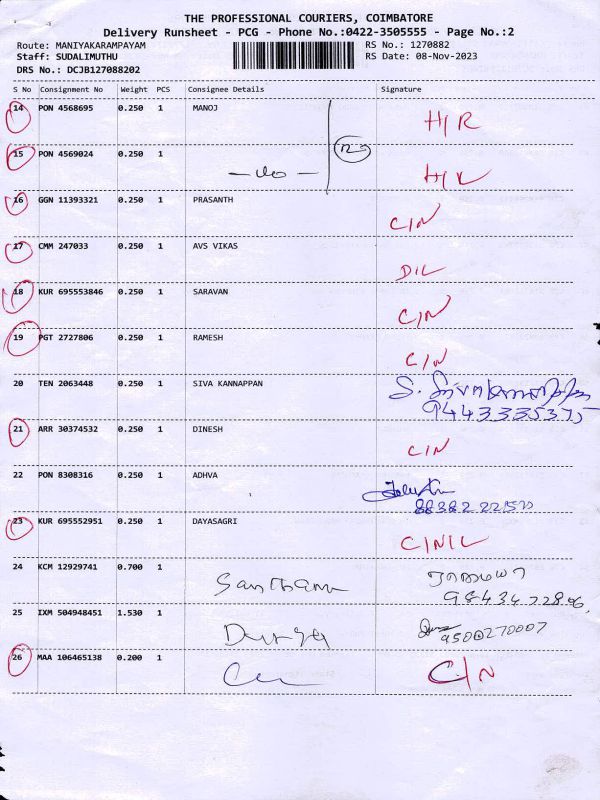 THE PROFESSIONAL COURIERS, COIMBATORE
Delivery Runsheet - PCG - Phone No.:0422-3505555 - Page No.:2
Route: MANIYAKARAMPAYAM RS No.: 1270882
Staff: SUDALIMUTHU RS Date: 08-Nov-2023
DRS No.: DCJB127088202
S No Consignment No Weight PCS Consignee Details Signature
14 PON 4568695 0.250 1 MANOJ H/R
15 PON 4569024 0.250 1
16 GGN 11393321 0.250 1 PRASANTH C/N
17 CMM 247033 0.250 1 AVS VIKAS D/L
18 KUR 695553846 0.250 1 SARAVAN C/N
19 PGT 2727806 0.250 1 RAMESH C/N
20 TEN 2063448 0.250 1 SIVA KANNAPPAN
9443335375
21 ARR 30374532 0.250 1 DINESH C/N
22 PON 8308316 0.250 1 ADHVA
23 KUR 695552951 0.250 1 DAYASAGRI C/N/L
24 KCM 12929741 0.700 1
25 IXM 504948451 1.530 1 Durga
9500270007
26 MAA 106465138 0.200 1 C/N